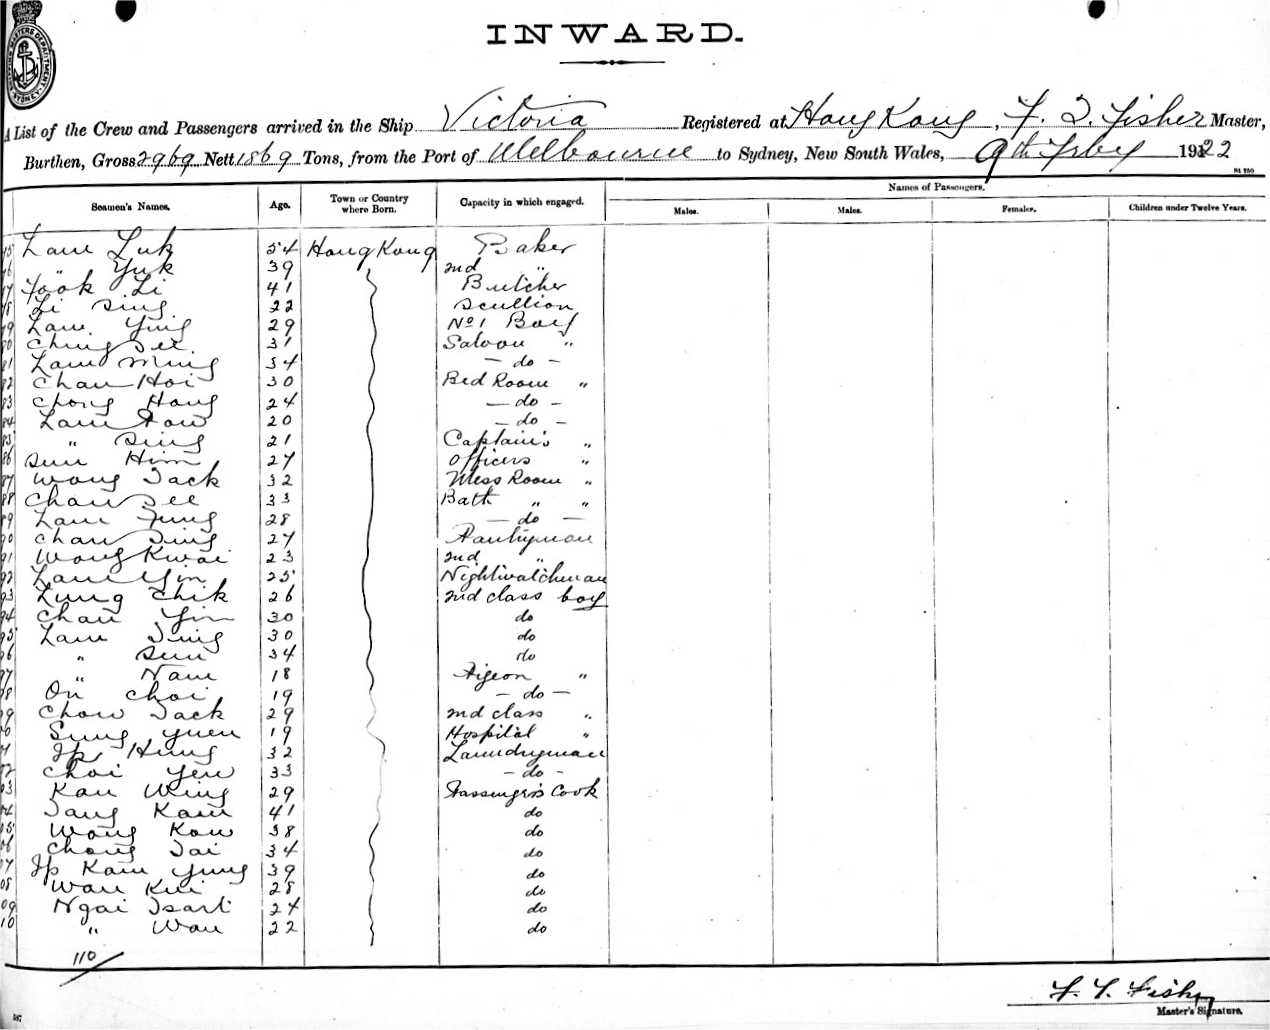 INWARD.
A List of the Crew and Passengers arrived in the Ship Victoria Registered at Hong Kong, F. T. Fisher Master,
Burthen, Gross 2969 Nett 1869 Tons, from the Port of Melbourne to Sydney, New South Wales, 9th Feby 1922
Names of Passengers.
Seamen's Names. Age. Town or Country where Born. Capacity in which engaged. Males. Males. Females. Children under Twelve Years.
75 Lam Luk 54 Hong Kong Baker
76 " Yuk 39 2nd "
77 Fook Li 41 Butcher
78 Li Sing 22 Scullion
79 Lam Ying 29 No 1 Boy
80 Ching See 31 Saloon "
81 Lam Ming 34 - do -
82 Chan Hoi 30 Bed Room "
83 Chong Hong 24 - do -
84 Lam Sow 20 - do -
85 " Sing 21 Captain's "
86 Sun Him 27 Officers "
87 Wong Jack 32 Mess Room "
88 Chan See 33 Bath " "
89 Lam Fung 28 - do -
90 Chan Sing 27 Pantryman
91 Wong Kwai 23 2nd "
92 Lam Yin 25 Nightwatchman
93 Lung Chik 26 2nd class boy
94 Chan Yin 30 do
95 Lam Ting 30 do
96 " Sun 34 do
97 " Nam 18 Pigeon "
98 On Choi 19 - do -
99 Chow Jack 29 2nd class "
00 Sung Yuen 19 Hospital "
01 Ip Hung 32 Laundryman
02 Choi Yew 33 - do -
03 Kan Wing 29 Passengers Cook
04 Tang Kam 41 do
05 Wong Kow 38 do
06 Chong Tai 34 do
07 Ip Kam Yung 39 do
08 Wan Kui 28 do
09 Ngai Tsart 24 do
10 " Wan 22 do
110
F. T. Fisher
Master's Signature.